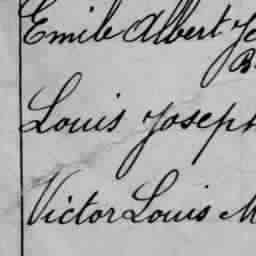 Emile Albert
Louis Joseph
Victor Louis M